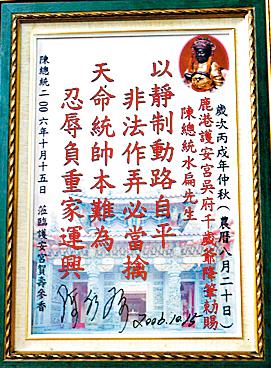 歲次丙戌年仲秋(農曆八月二十日)
鹿港護安宮吳府千歲爺降筆勅賜
陳總統水扁先生
以靜制動路自平
非法作弄必當擒
天命統帥本難為
忍辱負重家運興
陳總統二00六年十月十五日 蒞臨護安宮賀壽參香
陳水扁 2006.10.15